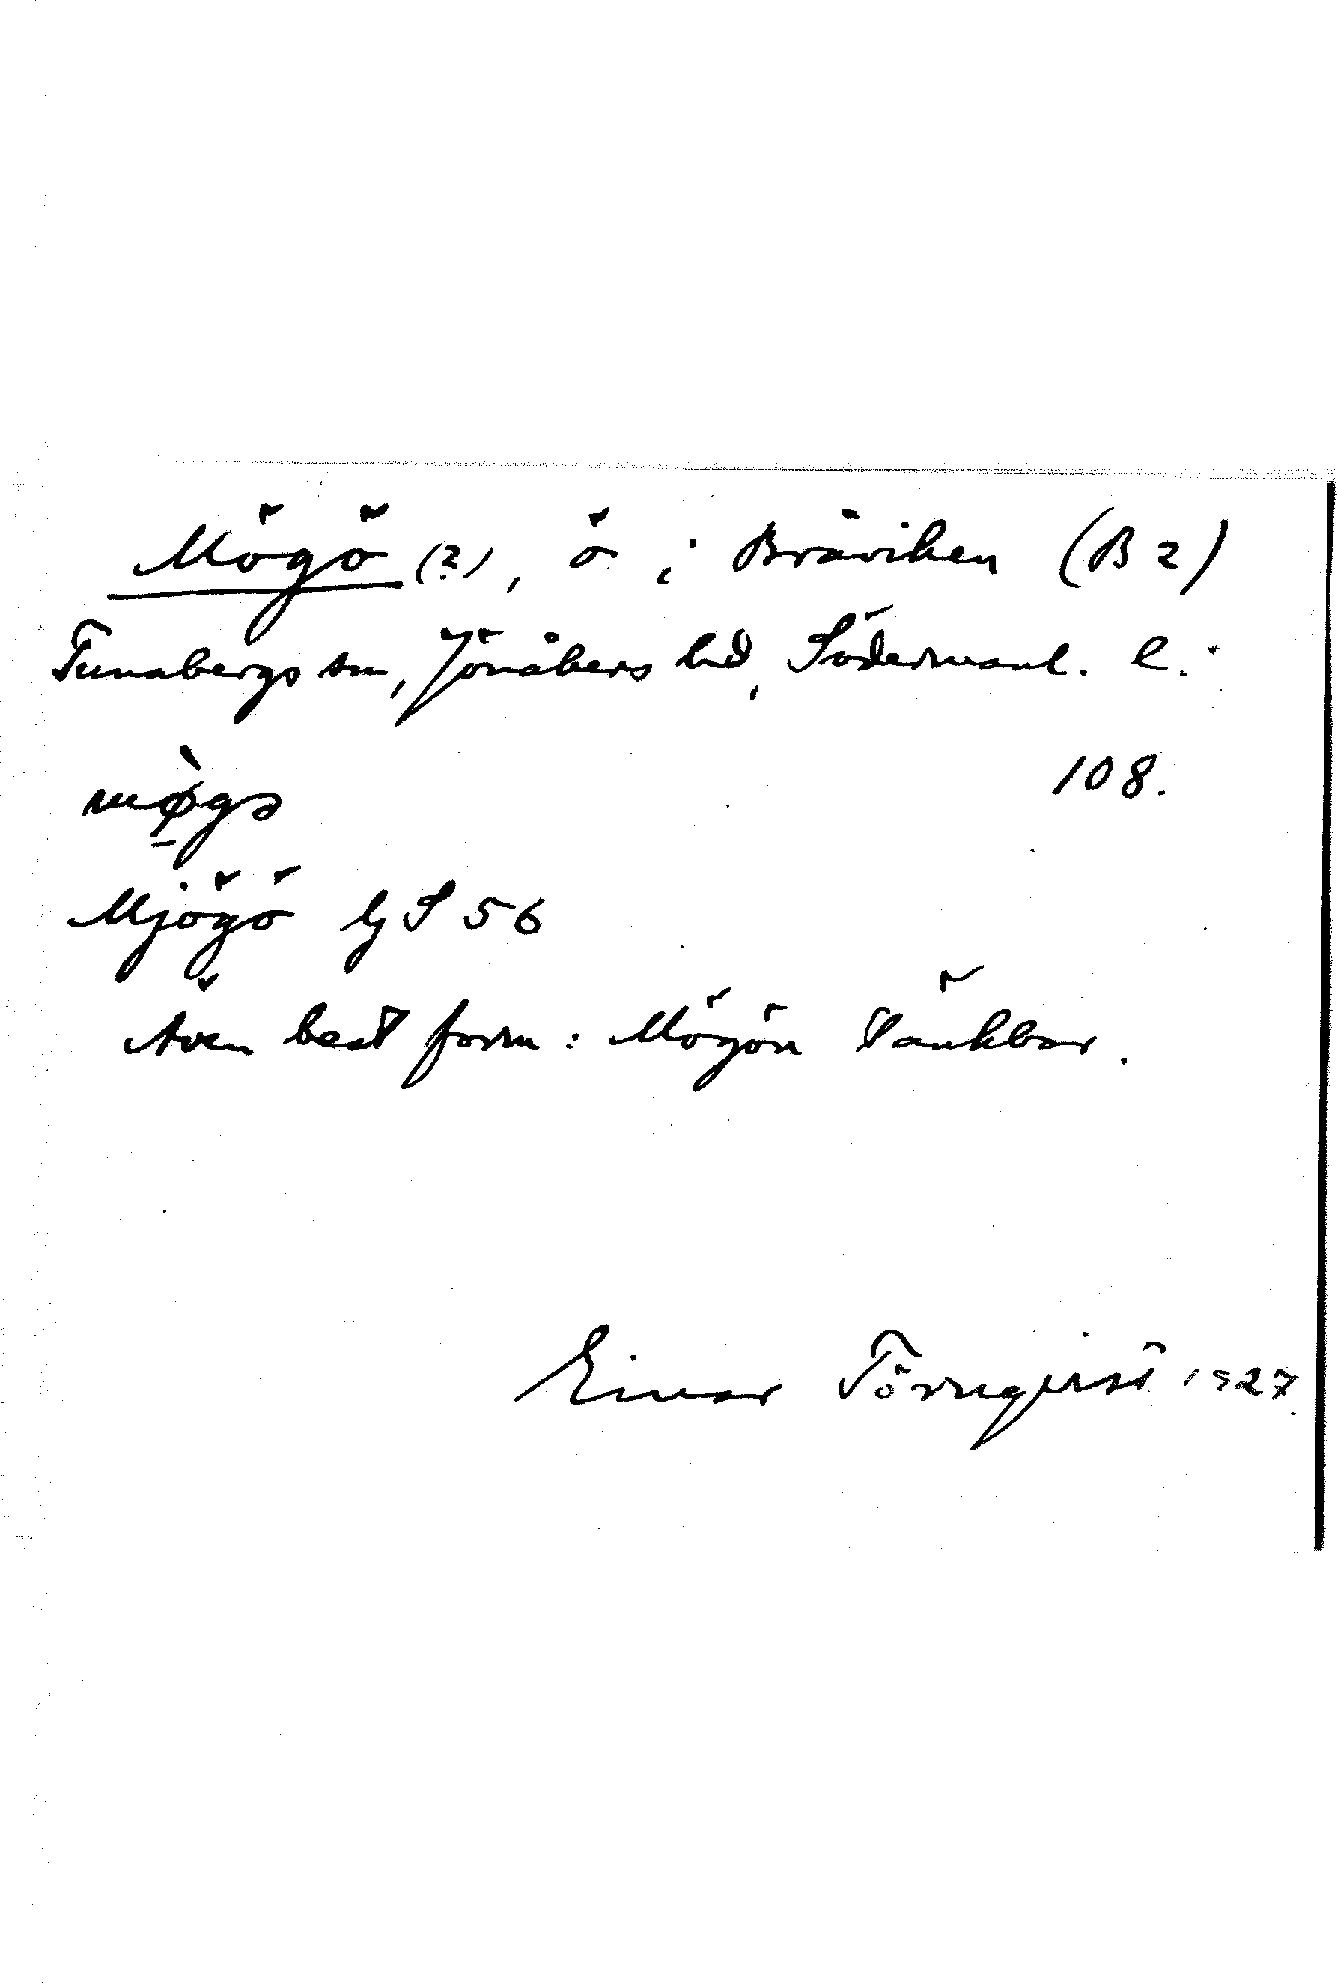 Mögö (?), ö i Bråviken (B 2)
Tunabergs sn, Jönåkers hd, Södermanl. l.
108.
mø̀gə
Mjögö GS 56
Även best form: Mögön tänkbar.
Einar Törnqvist 1927